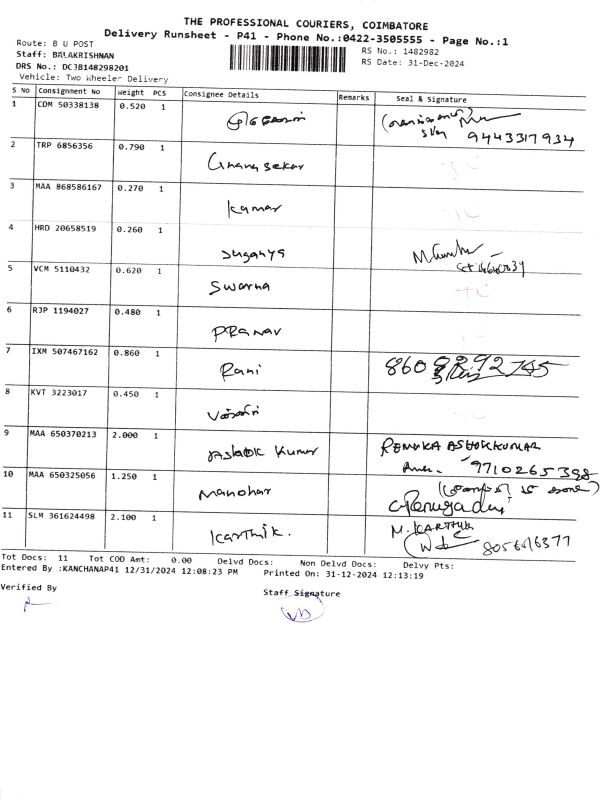 THE PROFESSIONAL COURIERS, COIMBATORE
Delivery Runsheet - P41 - Phone No.:0422-3505555 - Page No.:1
Route: B U POST
Staff: BALAKRISHNAN
DRS No.: DC3B148298201
Vehicle: Two Wheeler Delivery
RS No.: 1482982
RS Date: 31-Dec-2024
S No Consignment No Weight PCS Consignee Details Remarks Seal & Signature
1 CDM 50338138 0.520 1
9443317934
2 TRP 6856356 0.790 1 Gnanasekar
3 MAA 868586167 0.270 1 Kumar
4 HRD 20658519 0.260 1 Suganya
5 VCM 5110432 0.620 1 Swarna
6 RJP 1194027 0.480 1 PRanav
7 IXM 507467162 0.860 1 Rani
8 KVT 3223017 0.450 1
9 MAA 650370213 2.000 1 Ashok Kumar RENUKA ASHOKKUMAR
9710265398
10 MAA 650325056 1.250 1 Manohar
11 SLM 361624498 2.100 1 Karthik. M. KARTHIK
Tot Docs: 11 Tot COD Amt: 0.00 Delvd Docs: Non Delvd Docs: Delvy Pts:
Entered By :KANCHANAP41 12/31/2024 12:08:23 PM Printed On: 31-12-2024 12:13:19
Verified By Staff Signature